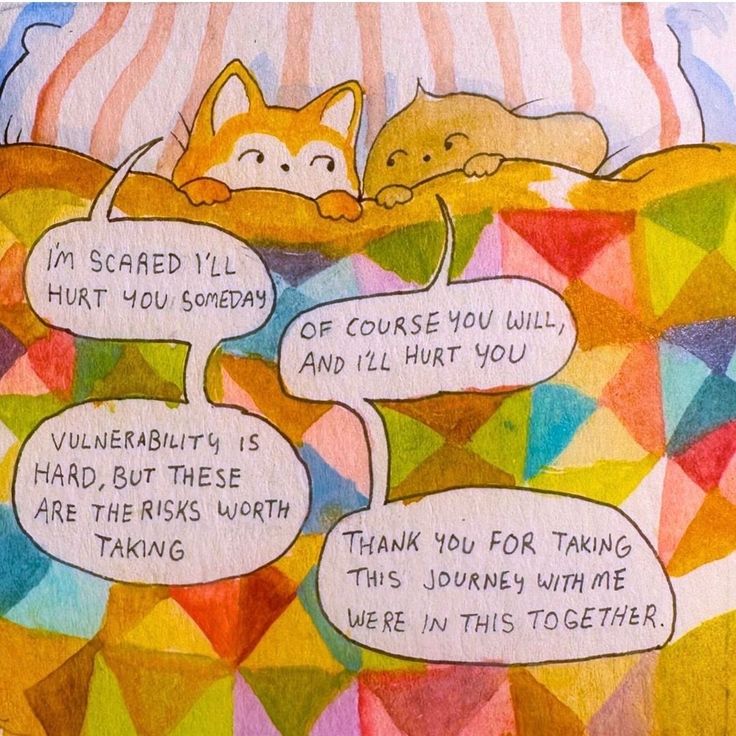 I'M SCARED I'LL
HURT YOU SOMEDAY
OF COURSE YOU WILL,
AND I'LL HURT YOU
VULNERABILITY IS
HARD, BUT THESE
ARE THE RISKS WORTH
TAKING
THANK YOU FOR TAKING
THIS JOURNEY WITH ME
WERE IN THIS TOGETHER.